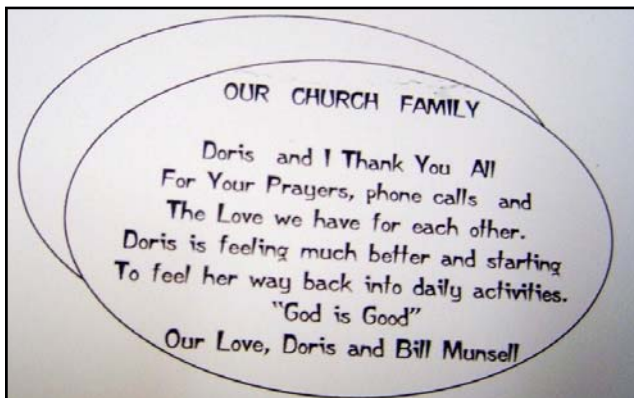 OUR CHURCH FAMILY
Doris and I Thank You All
For Your Prayers, phone calls and
The Love we have for each other.
Doris is feeling much better and starting
To feel her way back into daily activities.
"God is Good"
Our Love, Doris and Bill Munsell